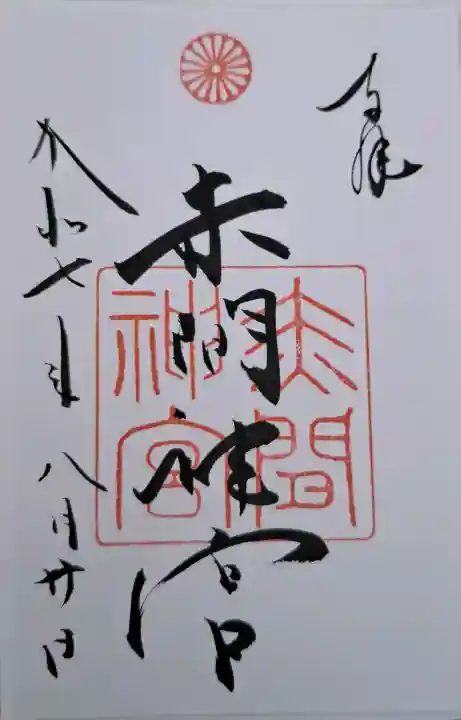 奉拝
赤間神宮
赤間
神宮
令和七年
八月廿日